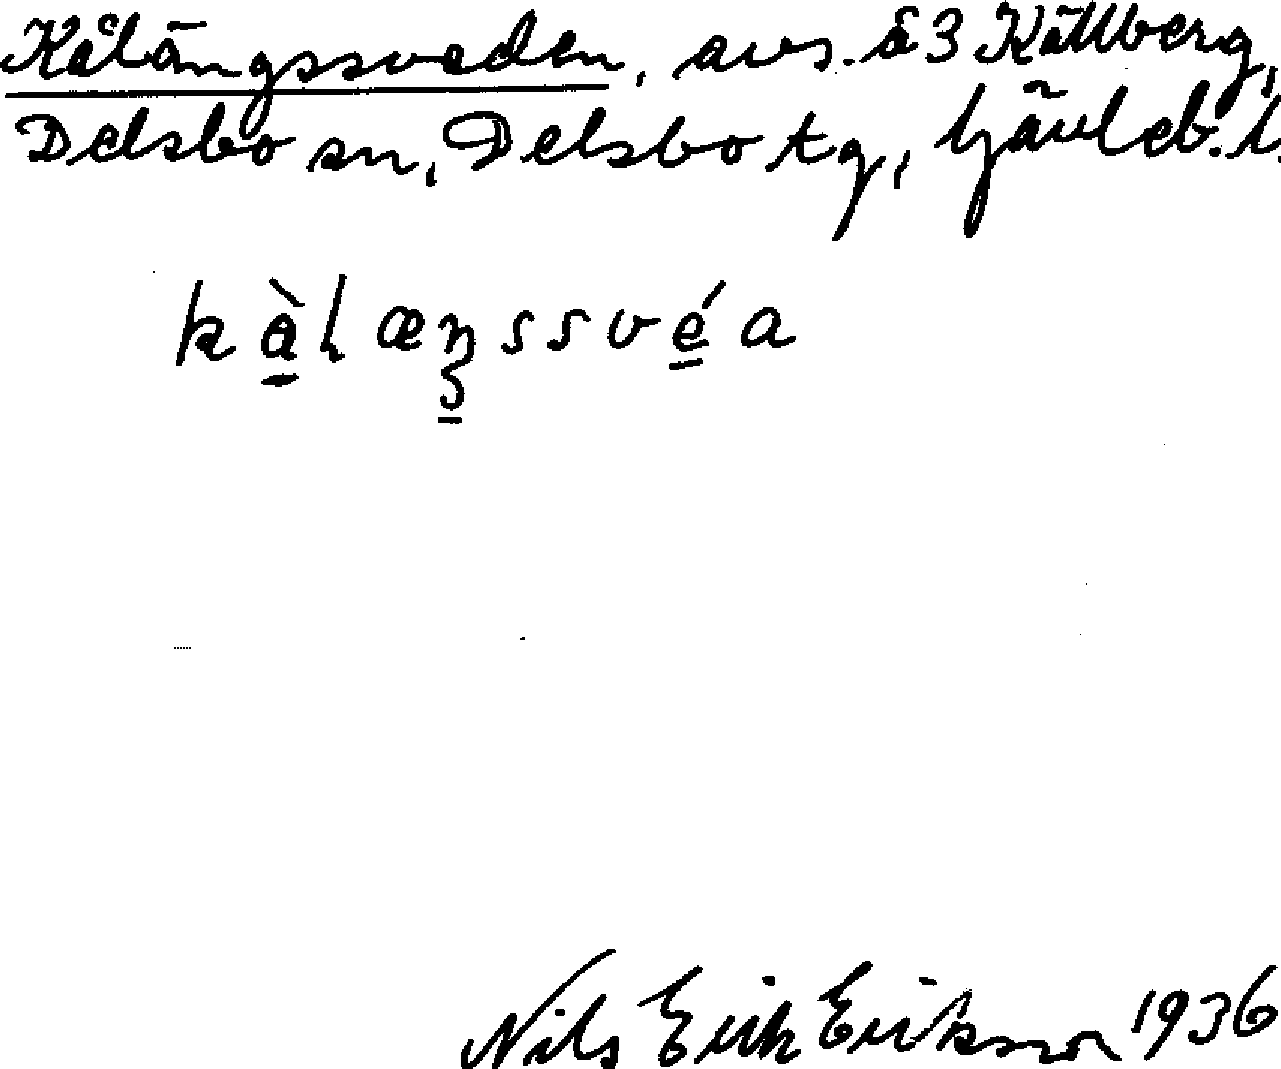 Kålängssveden, avs. å 3 Källberg,
Delsbo sn, Delsbo tg, Gävleb. l.
kålæŋssvéa
Nils Erik Erikson 1936